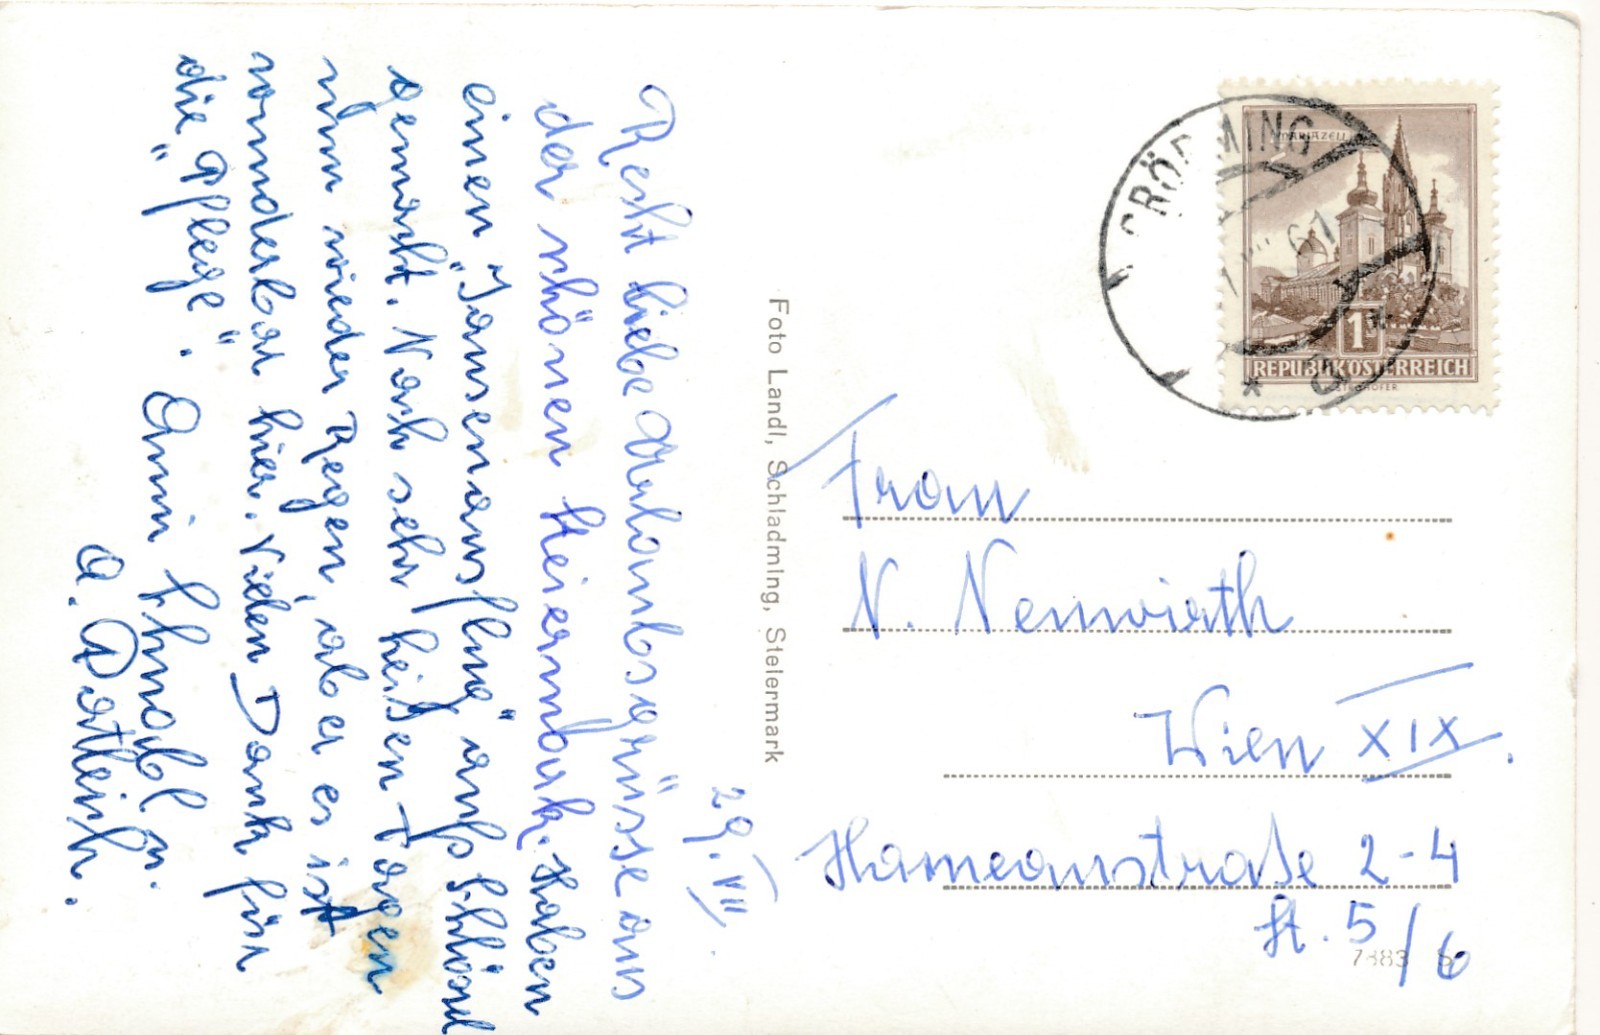 29. VII.
Recht liebe Urlaubsgrüsse aus
der schönen Steiermark. Haben
einen „Jausenausflug" aufs
gemacht. Nach sehr heißen Tagen
nun wieder Regen, aber es ist
wunderbar hier. Vielen Dank für
die „Pflege". Anni Schnabl u.
A.
Foto Landl, Schladming, Steiermark
GRÖBMING
MARIAZELL
1
REPUBLIK ÖSTERREICH
Frau
N. Neuwirth
Wien XIX.
Hameaustraße 2-4
St. 5/6
7883 S